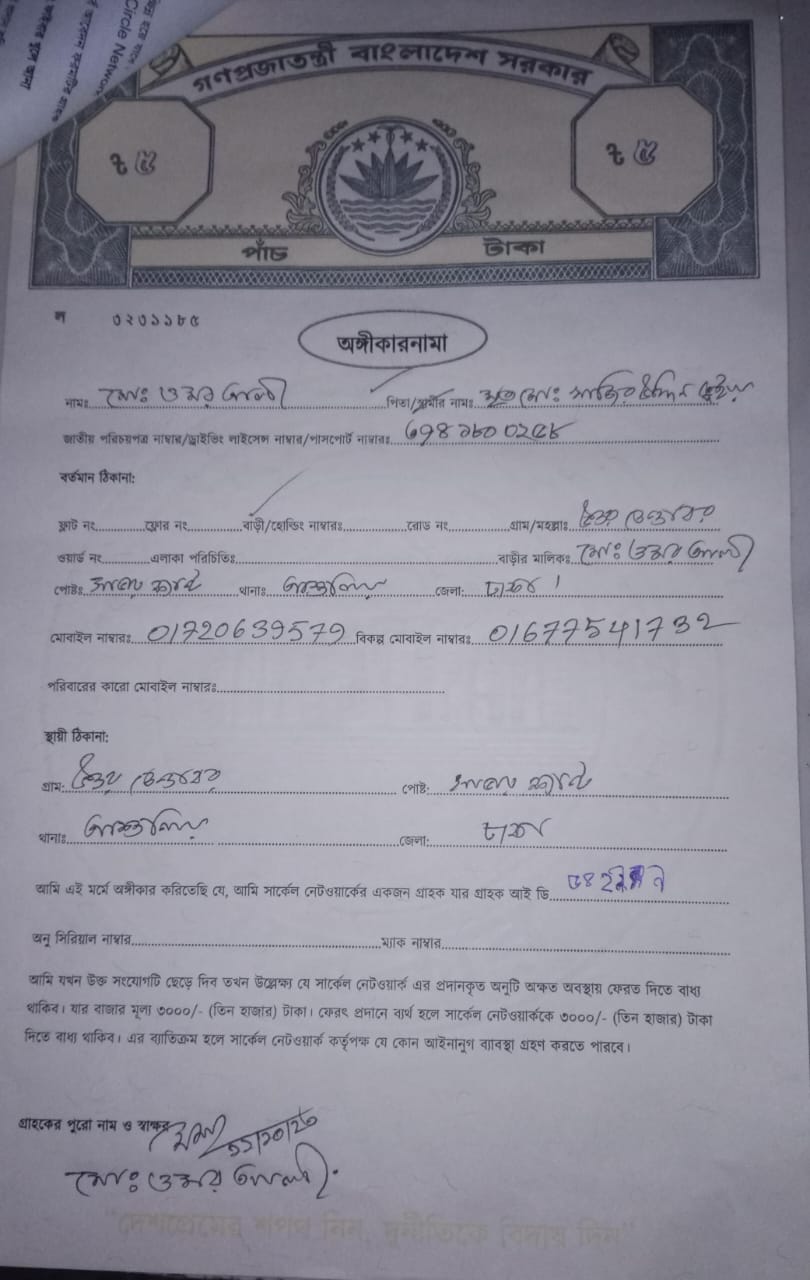 Circle Network
গণপ্রজাতন্ত্রী বাংলাদেশ সরকার
৳ ৫ ৳ ৫
পাঁচ টাকা
ন ০২০১১৮৫
অঙ্গীকারনামা
নামঃ মোঃ ওমর আলী পিতা/স্বামীর নামঃ মৃত মোঃ
জাতীয় পরিচয়পত্র নাম্বার/ড্রাইভিং লাইসেন্স নাম্বার/পাসপোর্ট নাম্বারঃ
বর্তমান ঠিকানা:
ফ্লাট নং ফ্লোর নং বাড়ী/হোল্ডিং নাম্বারঃ রোড নং গ্রাম/মহল্লাঃ
ওয়ার্ড নং এলাকা পরিচিতিঃ বাড়ীর মালিকঃ মোঃ ওমর আলী
পোষ্টঃ থানাঃ আশুলিয়া জেলা: ঢাকা।
মোবাইল নাম্বারঃ 01720639579 বিকল্প মোবাইল নাম্বারঃ 01677541732
পরিবারের কারো মোবাইল নাম্বারঃ
স্থায়ী ঠিকানা:
গ্রাম: পোষ্ট:
থানাঃ আশুলিয়া জেলা: ঢাকা
আমি এই মর্মে অঙ্গীকার করিতেছি যে, আমি সার্কেল নেটওয়ার্কের একজন গ্রাহক যার গ্রাহক আই ডি
অনু সিরিয়াল নাম্বার ম্যাক নাম্বার
আমি যখন উক্ত সংযোগটি ছেড়ে দিব তখন উল্লেক্ষ্য যে সার্কেল নেটওয়ার্ক এর প্রদানকৃত অনুটি অক্ষত অবস্থায় ফেরত দিতে বাধ্য
থাকিব। যার বাজার মূল্য ৩০০০/- (তিন হাজার) টাকা। ফেরৎ প্রদানে ব্যর্থ হলে সার্কেল নেটওয়ার্ককে ৩০০০/- (তিন হাজার) টাকা
দিতে বাধ্য থাকিব। এর ব্যাতিক্রম হলে সার্কেল নেটওয়ার্ক কর্তৃপক্ষ যে কোন আইনানুগ ব্যাবস্থা গ্রহণ করতে পারবে।
গ্রাহকের পুরো নাম ও স্বাক্ষর
মোঃ ওমর আলী
"দেশপ্রেমের শপথ নিন, দুর্নীতিকে বিদায় দিন"